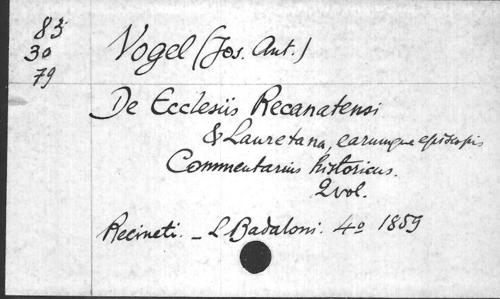 83
30
79
Vogel (Jos. Ant.)
De Ecclesiis Recanatensi
& Lauretana, earumque episcopis
Commentarius historicus.
2 vol.
Recineti. – L Badaloni. 4o 1859